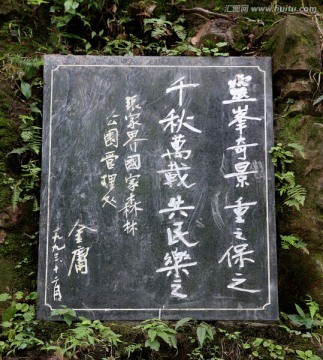 靈峯奇景重之保之
千秋萬載共民樂之
張家界國家森林
公園管理処
金庸
一九九三·十一月
汇图网 www.huitu.com